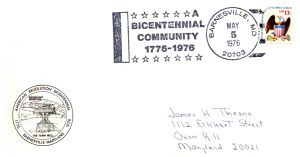 A
BICENTENNIAL
COMMUNITY
1776-1976
BARNESVILLE, MD
MAY
5
1976
20703
13c
AMERICAN REVOLUTION BICENTENNIAL
BARNESVILLE MARYLAND
James H. Throne
1112 Elkhart Street
Oxon Hill
Maryland 20021